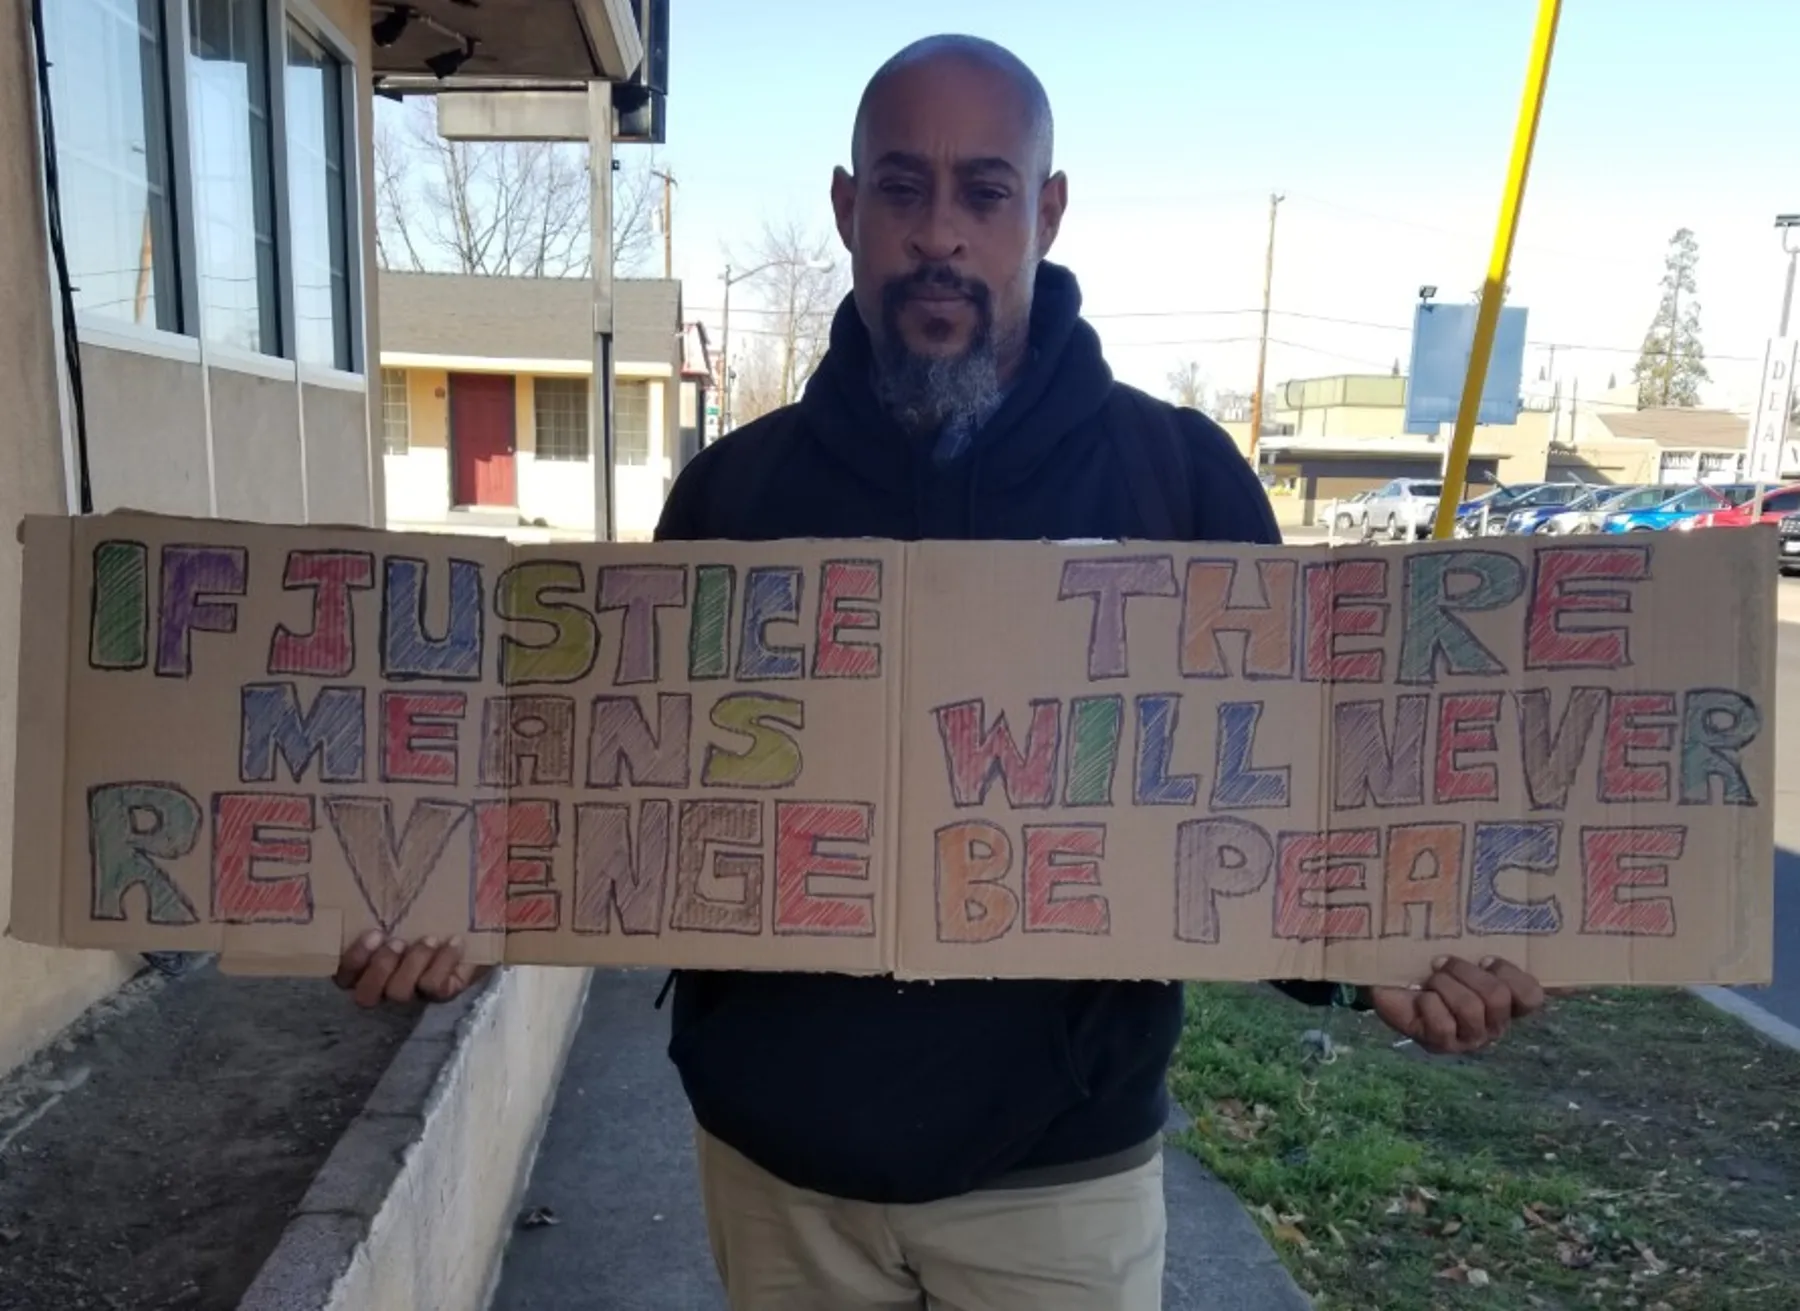 IF JUSTICE
MEANS
REVENGE
THERE
WILL NEVER
BE PEACE
DEAL